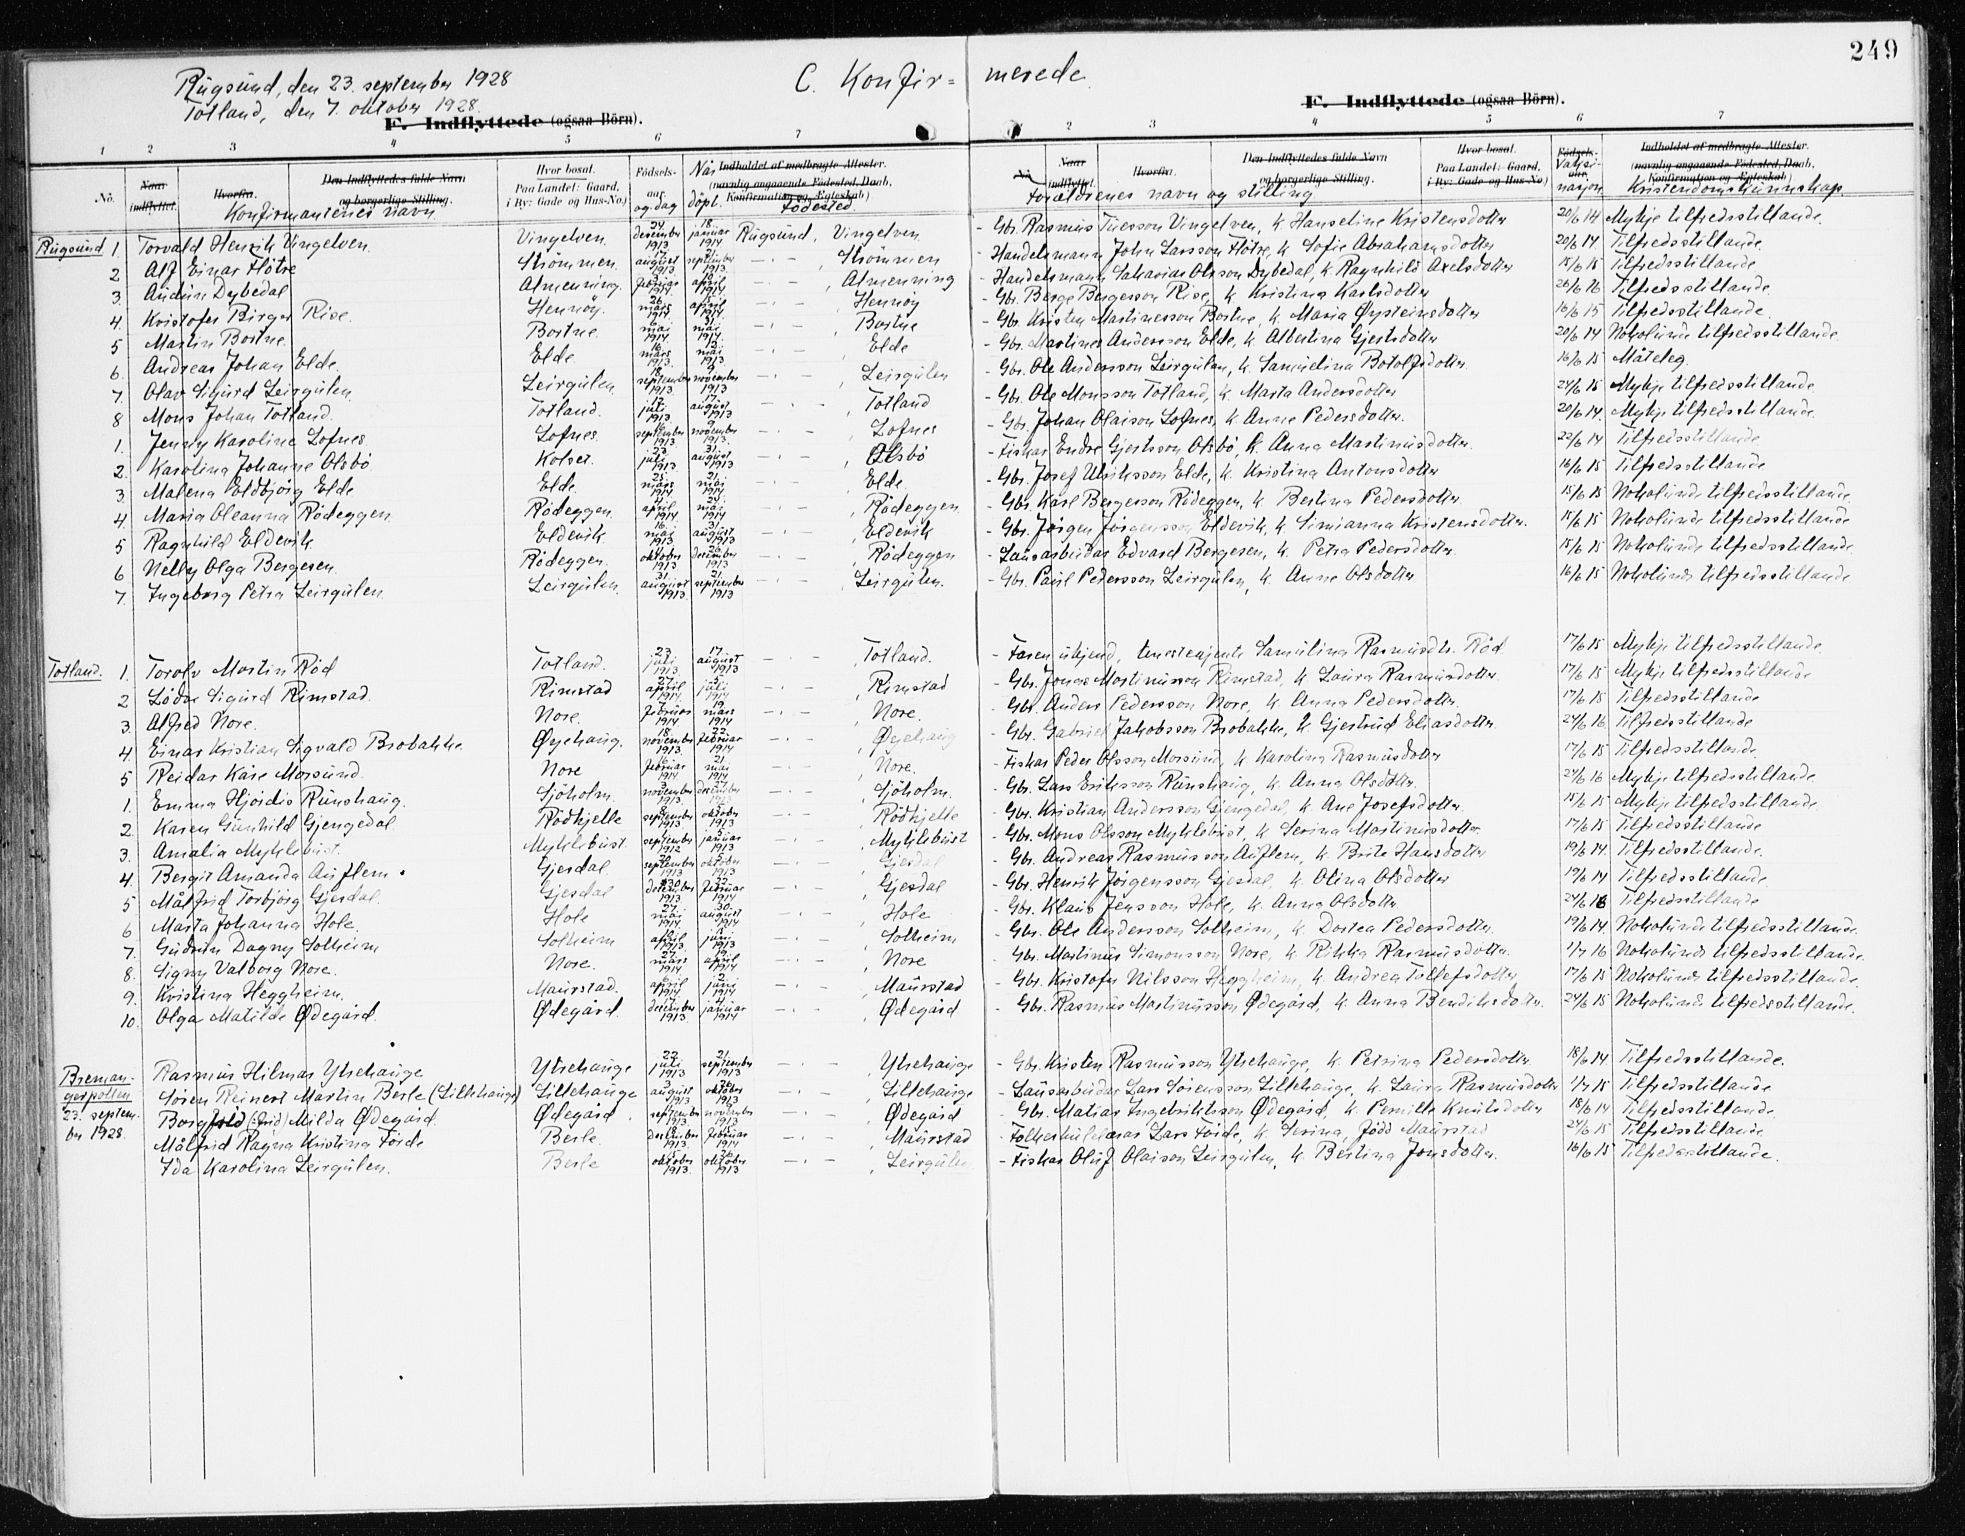 249
Rugsund, den 23. september 1928
Totland, den 7. oktober 1928.
C. Konfir= merede
F. Indflyttede (ogsaa Börn).
F. Indflyttede (ogsaa Börn).
1 2 3 4 5 6 7
2 3 4 5 6 7
No. Naar indflyttet. Hvorfra. Den Indflyttedes fulde Navn og borgerlige Stilling. Hvor bosat. Paa Landet: Gaard, i By: Gade og Hus-No.) Födsels-aar og dag Når döpt. Indholdet af medbragte Attester. (navnlig angaaende Födested, Daab, Konfirmation og Ægteskab)
Konfirmantenes navn Födested.
Naar indflyttet. Hvorfra. Den Indflyttedes fulde Navn og borgerlige Stilling. Hvor bosat. Paa Landet: Gaard, i By: Gade og Hus-No.) Födsels-aar. Vaksinasjon Indholdet af medbragte Attester. (navnlig angaaende Födested, Daab, Konfirmation og Ægteskab)
Foreldrenes navn og stilling Kristendomskunnskap.
Rugsund 1 Torvald Henrik Vingelven. Vingelven. 24. desember 1913 18. januar 1914 Rugsund, Vingelven - Gbr. Rasmus Vingelven, k. Hanseline Kristensdotter 20/6 14 Mykje tilfredsstillande.
2 Alf Einar Hötre Strömmen. august 1913 september 1913. - . - , Strömmen - Handelsmann John Larsson Hötre, k. Sofie Abrahamsdotter 20/6 14 Tilfredsstillande.
3. Audun Dybedal Almenning. februar 1914 april 1914 - . - , Almenning - Handelsmann Sakarias Olsson Dybedal, k. Ragnhild Axelsdotter 15/6 15 Tilfredsstillande
4. Kristofer Birger Rise. Hennöy. 26. mars april - . - , Hennöy - Gbr. Berge Bergersson Rise, k. Kristina Karlsdotter 26/6 16 Tilfredsstillande.
5 Martin Bortne. Bortne. 6. mai 1914 31. mai 1914 - . - , Bortne - Gbr. Kristen Martinusson Bortne, k. Maria Öysteinsdotter 16/6 15 Tilfredsstillande.
6. Andreas Johan Elde. Elde 16. mars 1913 12. mai 1913. - . - , Elde - Gbr. Martines Andersson Elde, k. Albertina Gjertsdotter 20/6 14 Nokolunde tilfredsstillande.
7. Olav Sigurd Leirgulen. Leirgulen. 18. september 1913. 9. november 1913 - . - , Leirgulen - Gbr. Ole Andersson Leirgulen, k. Samuelina Botolfsdotter. 16/6 15 Måteleg.
8 Mons Johan Totland. Totland. juli 1913 17. august 1913 - . - , Totland - Gbr. Ole Monsson Totland, k. Marta Andersdotter 24/6 15 Mykje tilfredsstillande
1. Jenny Karoline Lofnes. Lofnes. september 1913 9. november 1913. - . - , Lofnes - Gbr. Johan Olaison Lofnes, k. Anne Pedersdotter. 20/6 14. Mykje tilfredsstillande.
2. Karolina Johanne Olsbö Kolset. 23. juli 1913 31. august 1913 - . - , Olsbö - Fiskar Endre Gjertsson Olsbö, k. Anna Martinusdotter. 22/6 14 Tilfredsstillande
3 Malena Oldbjörg Elde Elde. 25. mars 1914 21. mai 1914 - . - , Elde. - Gbr. Josef Ulriksson Elde, k. Kristina Antonsdotter 16/6 15 Tilfredsstillande
4. Maria Oleanna Rödeggen. Rödeggen. april 1914 24. mai 1914 - . - , Rödeggen - Gbr. Karl Bergerson Rödeggen, k. Bertina Pedersdotter. 15/6 15 Nokolunde tilfredsstillande.
5 Ragnhild Eldevik. Eldevik 16. mai 1913 31. august 1913 - . - , Eldevik - Gbr. Jörgen Jörgensson Eldevik, k. Simianna Kristensdotter. 15/6 15 Nokolunde tilfredsstillande
6 Nelly Olga Bergesen. Rödeggen. oktober 1913 26. desember 1913 - . - , Rödeggen - Lausarbeidar Edvard Bergesen, k. Petra Pedersdotter. 15/6 15 Nokolunde tilfredsstillande.
7. Ingeborg Petra Leirgulen. Leirgulen. 31. august 1913. 21. september 1913 - . - , Leirgulen. - Gbr. Paul Pedersson Leirgulen, k. Anne Olsdotter 16/6 15 Nokolunde tilfredsstillande
Totland. 1. Torolv Martin Röd Totland. 23. juli 1913 17. august 1913 - . - , Totland. - Faren ukjend, tenestejente Samulina Rasmusdtr. Röd. 17/6 15 Mykje tilfredsstillande.
2 Lodve Sigurd Rimstad. Rimstad 27. april 1914 5. juli 1914 - . - , Rimstad - Gbr. Jonas Martinusson Rimstad, k. Laura Rasmusdotter. 17/6 15 Mykje tilfredsstillande
3 Alfred Nore. Nore. februar 1914 19. mars 1914 - . - , Nore. - Gbr. Anders Pedersson Nore, k. Anna Pedersdotter. 17/6 15 Tilfredsstillande
4 Einar Kristian Sigvald Brobakke Öyehaug. 18. november 1913. 22. februar 1914 - . - , Öyehaug - Gbr. Gabriel Jakobsson Brobakke, k. Gjertrud Eliasdotter 24/6 16 Tilfredsstillande
5 Reidar Kåre Morsund. Nore 16. februar 1914 21. mai 1914 - . - , Nore. - Fiskar Peder Olsson Morsund, k. Karolina Rasmusdotter 17/6 15 Tilfredsstillande
1. Emma Hjördis Runshaug. Sjöholm. 3. november 1913. 27. desember - . - , Sjöholm. - Gbr. Lars Eriksson Runshaug, k. Anna Olsdotter. 24/6 16 Mykje tilfredsstillande
2. Karen Gunhild Gjengedal. Rödkjelle 8. september 1913. 5. oktober 1913 - . - , Rödkjelle - Gbr. Kristian Andersson Gjengedal, k. Ane Josefsdotter. 15/6 15 Mykje tilfredsstillande.
3. Amalia Myklebust. Myklebust. september 1912 5. januar 1913 - . - , Myklebust - Gbr. Mons Olsson Myklebust, k. Serina Martinusdotter. 17/6 15 Tilfredsstillande
4. Bergit Amanda Auflem. Gjesdal. september 1913 oktober 1913 - . - , Gjesdal - Gbr. Andreas Rasmusson Auflem, k. Brite Hansdotter 19/6 14. Tilfredsstillande.
5 Målfrid Torbjörg Gjesdal. Gjesdal 20. desember 1913 22. februar 1914 - . - , Gjesdal - Gbr. Henrik Jörgensson Gjesdal, k. Olina Olsdotter 19/6 14 Tilfredsstillande.
6 Marta Johanna Hole. Hole 24. mai 1914 30. august 1914 - . - , Hole - Gbr. Klaus Jensson Hole, k. Anna Olsdotter. 24/6 16 Tilfredsstillande
7. Gudrun Dagny Solheim Solheim april 1913 juni 1913 - . - , Solheim - Gbr. Ole Andersson Solheim, k. Dortea Pedersdotter. 19/6 14. Nokolunde tilfredsstillande.
8. Signy Valborg Nore. Nore. 27. mars 1914 19. april 1914 - . - , Nore - Gbr. Martinus Simonsson Nore, k. Rikka Rasmusdotter. 1/7 16 Nokolunde tilfredsstillande.
9. Kristina Heggheim. Maurstad. april 1914 2. juni 1914 - . - , Maurstad - Gbr. Kristofer Nilsson Heggheim, k. Andrea Tollefsdotter 17/6 15 Nokolunde tilfredsstillande.
10. Olga Matilde Ödegård. Ödegård. desember 1913. 4. januar 1914 - . - , Ödegård - Gbr. Rasmus Martinusson Ödegård, k. Anna Bendiksdotter. 24/6 15 Nokolunde tilfredsstillande.
Breman- Rasmus Hilmar Ytrehauge Ytrehauge 22. juli 1913 21. september 1913 - . - , Ytrehauge - Gbr. Kristen Rasmusson Ytrehauge, k. Petrina Pedersdotter 18/6 14 Tilfredsstillande.
gerpollen Sören Reinert Martin Berle (Lillehauge) Lillehauge 3. august 1913 oktober 1913 - . - , Lillehauge - Lausarbeidar Lars Sörensson Lillehauge, k. Laura Rasmusdotter 1/7 15 Tilfredsstillande
23. septem- Borghild Milda Ödegård. Ödegård. september 1913 november 1913. - . - , Ödegård - Gbr. Matias Ingebriktsson Ödegård, k. Pernille Knutsdotter 18/6 14 Tilfredsstillande.
ber 1928. Målfrid Ragna Kristina Förde Berle. 18. desember 1913. 15. februar 1914 - . - , Maurstad - Folkeskulelærar Lars Förde, k. Serina, född Maurstad 24/6 15 Tilfredsstillande
Ida Karolina Leirgulen. Berle oktober 1913. 26. oktober 1913 - . - , Leirgulen - Fiskar Oluf Olaison Leirgulen, k. Bertina Jonsdotter. 16/6 15 Tilfredsstillande.